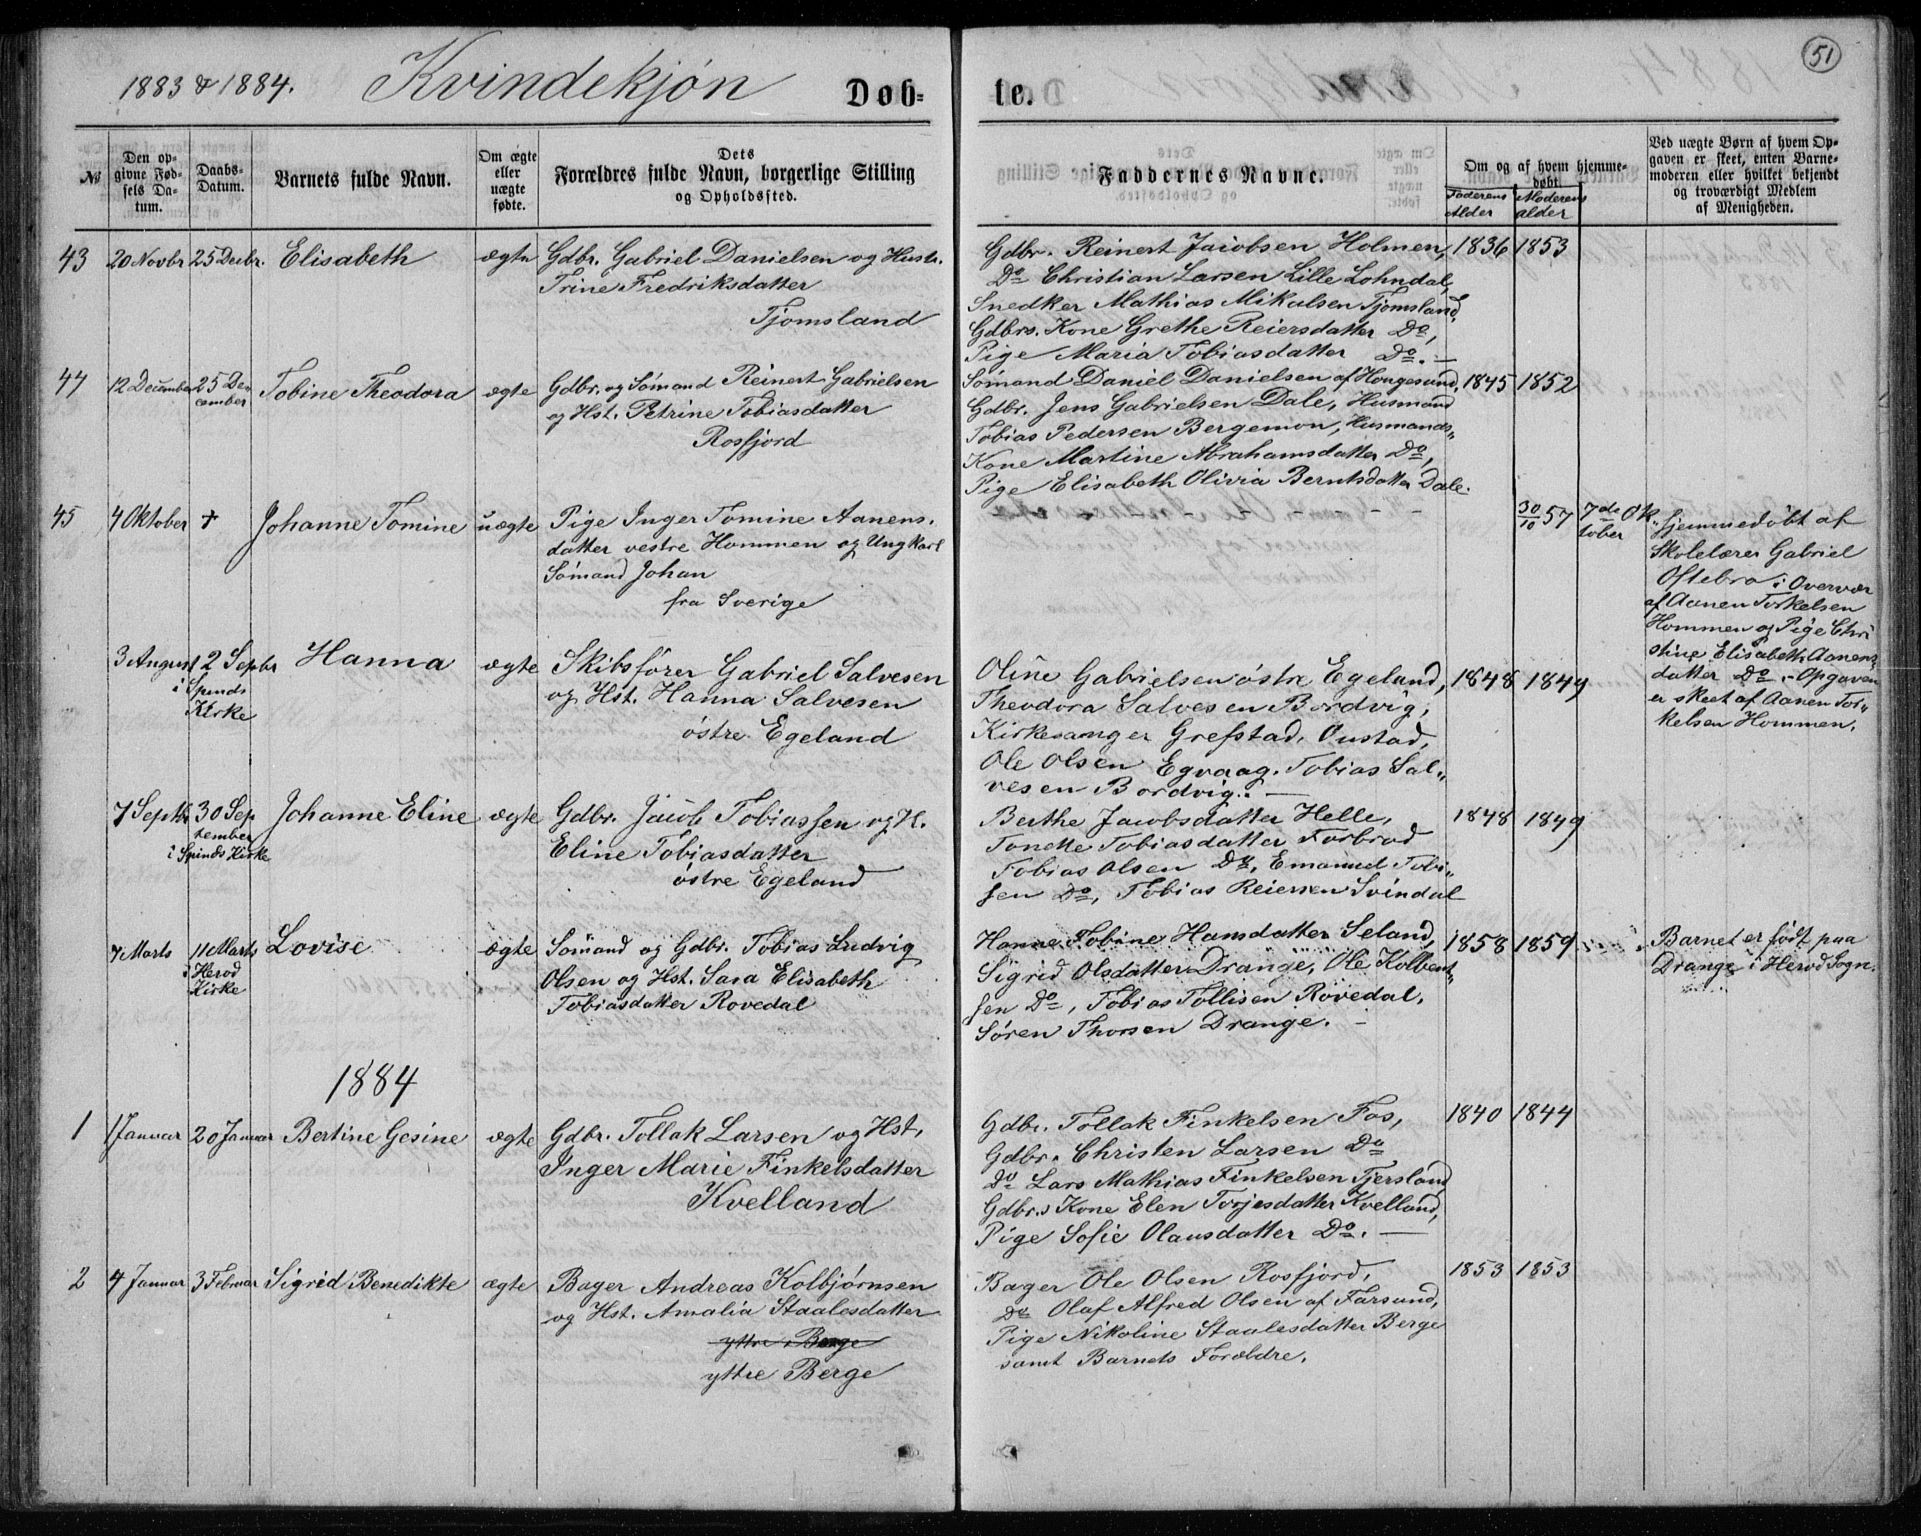 1883 & 1884. Kvindekjön Døb- te. 51
No
Den opgivne Fødsels Datum.
Daabs-Datum.
Barnets fulde Navn.
Om ægte eller uægte fødte.
Dets Forældres fulde Navn, borgerlige Stilling og Opholdssted.
Faddernes Navne.
Om og af hvem hjemmedøbt.
Faderens Alder
Moderens alder
Ved uægte Børn af hvem Opgaven er skeet, enten Barnemoderen eller hvilket bekjendt og troværdigt Medlem af Menigheden.
43 20 Novbr 25 Decbr. Elisabeth ægte
Gdbr. Gabriel Danielsen og Hustr.
Trine Fredriksdatter
Tjomsland
Gdbr. Reinert Jacobsen Holmen,
Do Christian Larsen Lille Lohndal,
Snedker Mathias Mikalsen Tjomsland,
Gdbrs. Kone Grethe Reiersdatter Do,
Pige Maria Tobiasdatter Do. —
1836 1853
44 12 December 25 December Tobine Theodora ægte
Gdbr. og Sømand Reinert Gabrielsen
og Hst. Petrine Tobiasdatter
Rosfjord
Sømand Daniel Danielsen af Hougesund,
Gdbr. Jens Gabrielsen Dale, Husmand
Tobias Pedersen Bergemon, Husmands-
Kone Martine Abrahamsdatter Do,
Pige Elisabeth Olivia Berntsdatter Dale.
1845 1852
45 4 Oktober + Johanne Tomine uægte
Pige Inger Tomine Aanens.
datter vestre Hommen og Ungkarl
Sømand Johan
fra Sverige
- - - - - - - -
30/10 57
7de Ok-
tober
hjemmedøbt af
Skolelærer Gabriel
Oftebro i Overvær
af Aanen Torkelsen
Hommen og Pige Chri
stine Elisabeth Aanens-
datter Do. - Opgaven
er skeet af Aanen Tor-
kelsen Hommen.
3 August 2 Septbr
i Spinds
Kirke
Hanna ægte
Skibsfører Gabriel Salvesen
og Hst. Hanna Salvesen
østre Egeland
Oline Gabrielsen østre Egeland,
Theodora Salvesen Bordvig,
Kirkesanger Grefstad, Oustad,
Ole Olsen Egvaag. Tobias Sal-
vesen Bordvig. —
1848 1849
7 Septbr 30 Sep
tember
i Spinds Kirke
Johanne Eline ægte
Gdbr. Jacob Tobiassen og H.
Eline Tobiasdatter
østre Egeland
Berthe Jacobsdatter Helle,
Tonette Tobiasdatter Forbrod
Tobias Olsen Do, Emanuel Tobi-
sen Do, Tobias Reiersen Svindal
1848 1849
7 Marts 11 Marts
i Herod
Kirke
Lovise ægte
Sømand og Gdbr. Tobias Ludvig
Olsen og Hst. Sara Elisabeth
Tobiasdatter Rovedal
Hanne Tobine Hansdatter Seland,
Sigrid Olsdatter Drange, Ole Kolbent-
sen Do, Tobias Tollisen Røvedal,
Søren Thorsen Drange. -
1858 1859
Barnet er født paa
Drange i Herod Sogn.
1884
1 1 Januar 20 Januar Bertine Gesine ægte
Gdbr. Tollak Larsen og Hst,
Inger Marie Finkelsdatter
Kvelland
Gdbr. Tollak Finkelsen Fos,
Gdbr. Christen Larsen Do
Do Lars Mathias Finkelsen Tjersland,
Gdbr.s Kone Elen Torjesdatter Kvelland,
Pige Sofie Olausdatter Do. —
1840 1844
2 4 Januar 3 Februar Sigrid Benedikte ægte
Bager Andreas Kolbjørnsen
og Hst. Amalia Staalesdatter
yttre Berge
yttre Berge
Bager Ole Olsen Rosfjord,
Do Olaf Alfred Olsen af Farsund,
Pige Nikoline Staalesdatter Berge
samt Barnets Forældre.
1853 1853